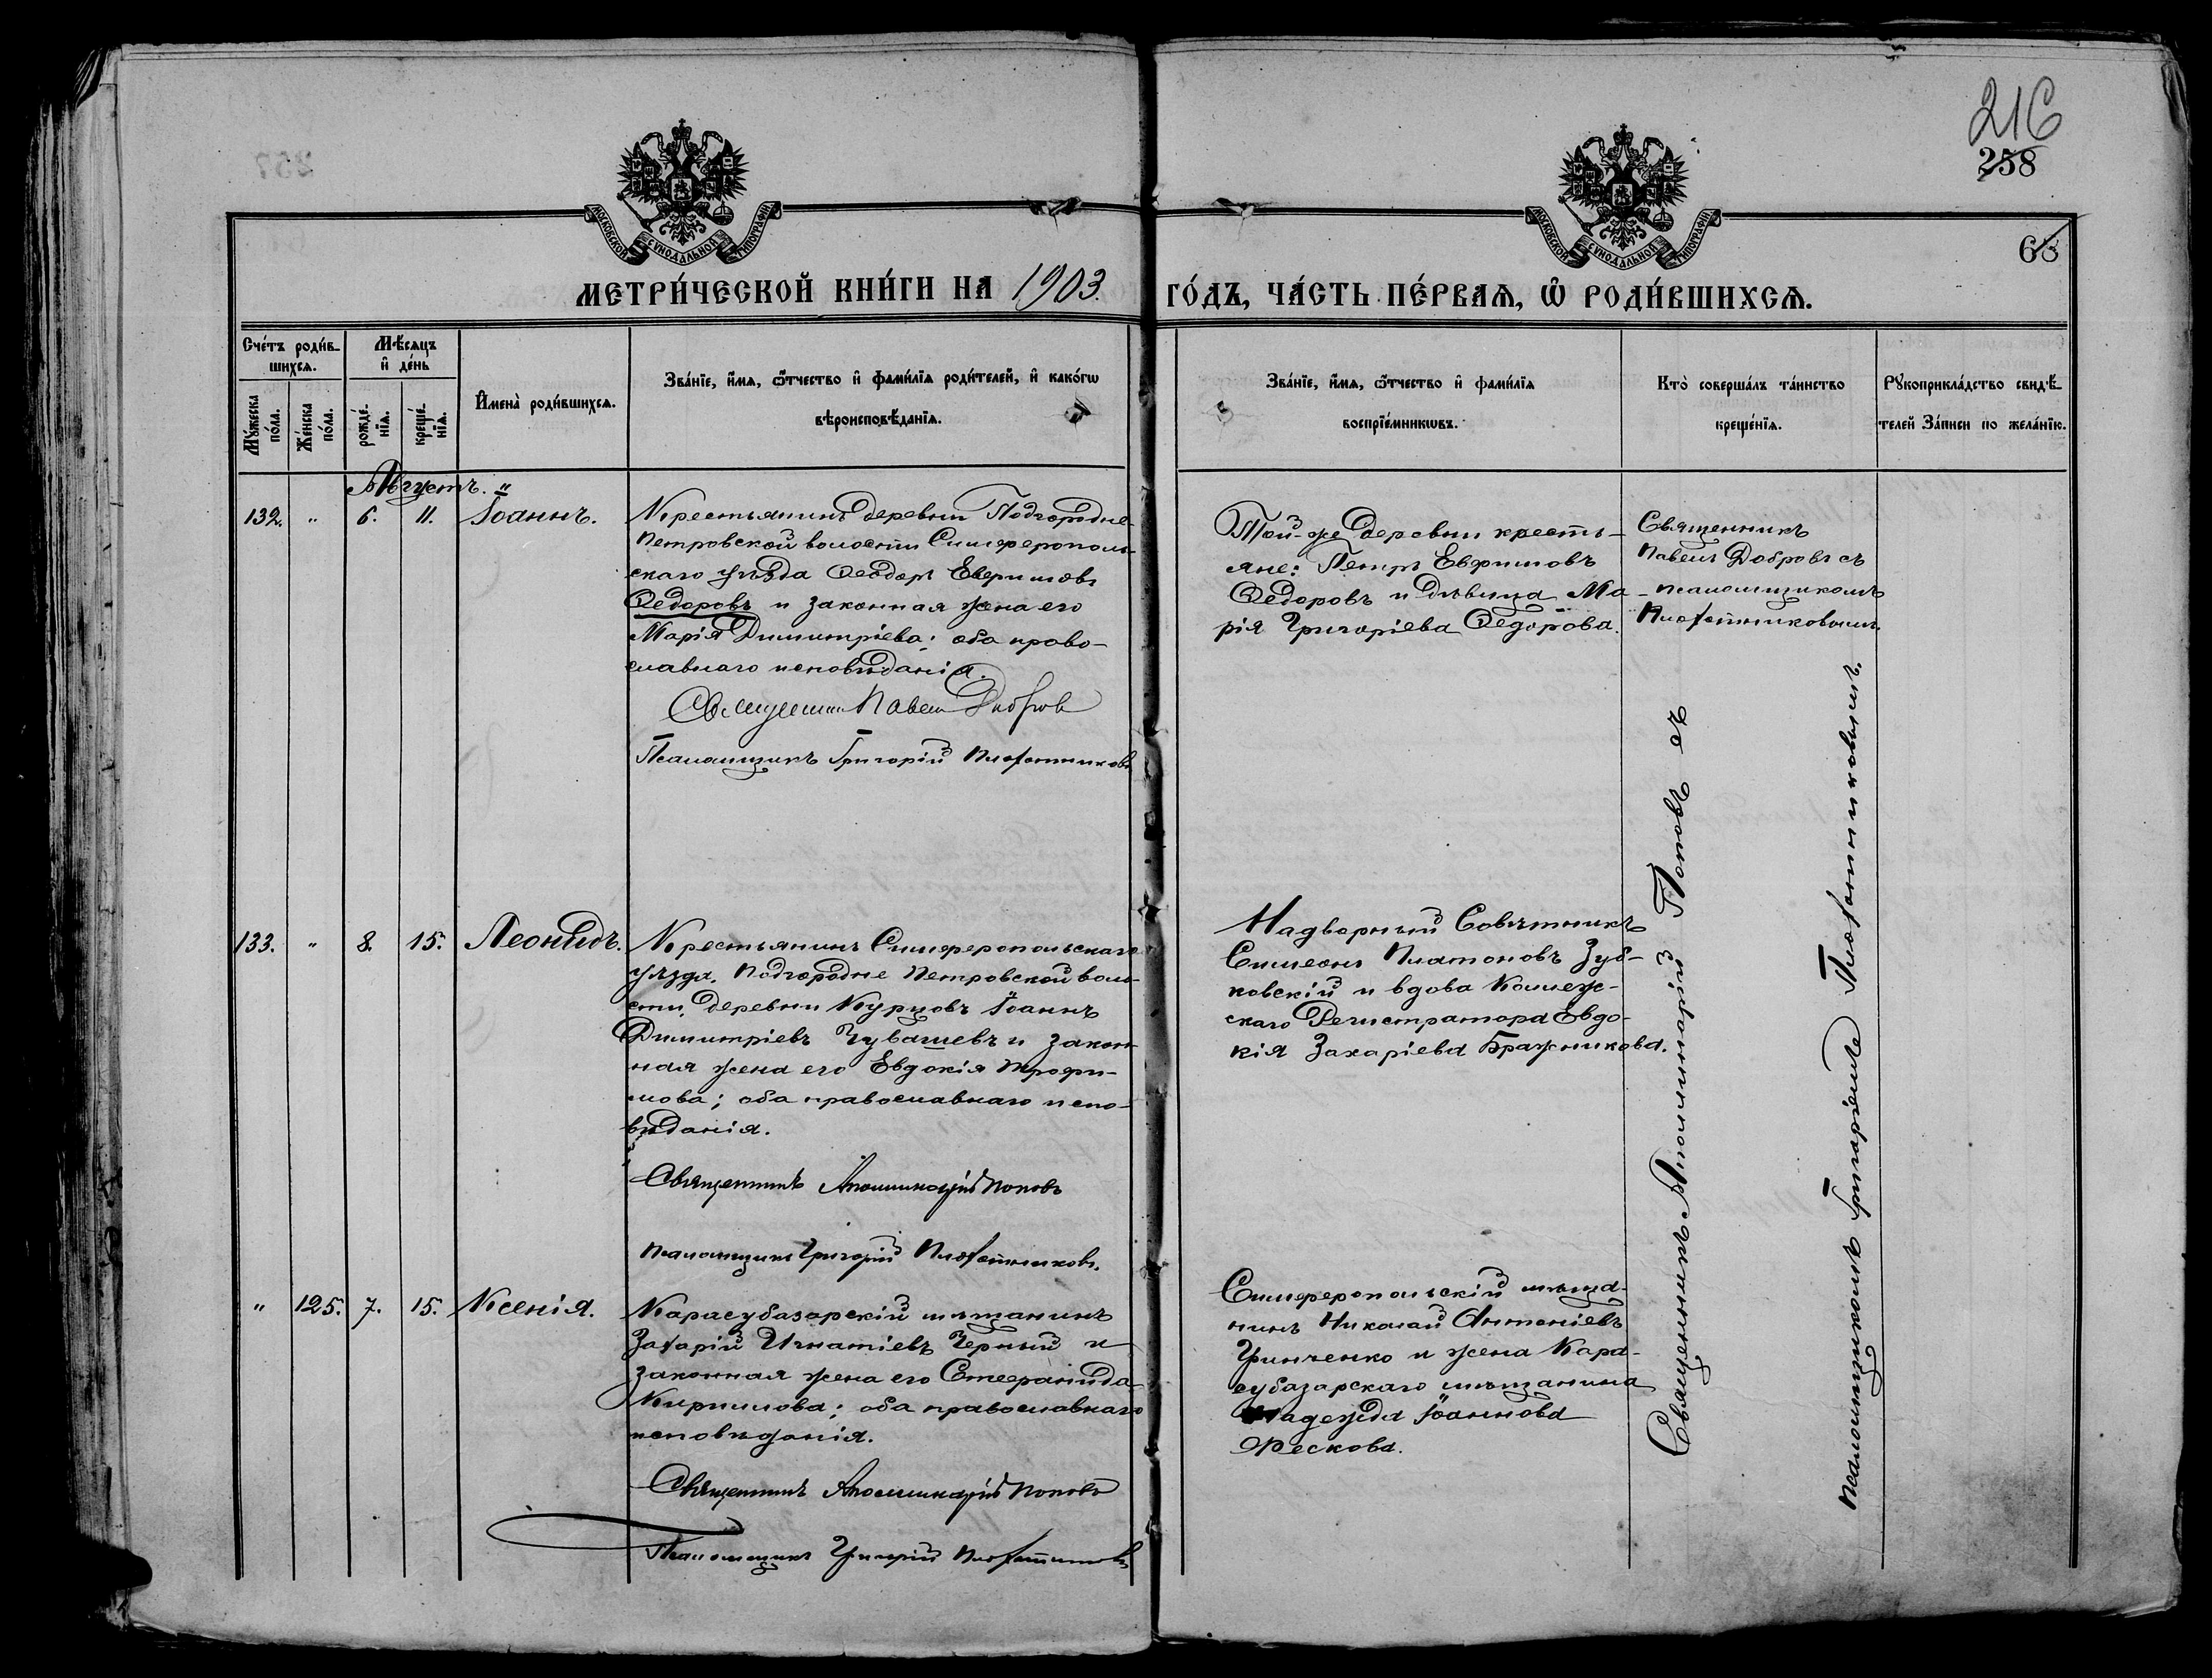 216
258
68
МОСКОВСКОЙ СѴНОДАЛЬНОЙ ТИПОГРАФІИ
МОСКОВСКОЙ СѴНОДАЛЬНОЙ ТИПОГРАФІИ
МЕТРИ́ЧЕСКОЙ КНИ́ГИ НА 1903. ГО́ДЪ, ЧА́СТЬ ПЕ́РВАѦ, Ѽ РОДИ́ВШИХСѦ.
Сче́тъ роди́в-
шихсѧ.
Мꙋ́жеска по́ла.
Же́нска по́ла.
Мѣ́сѧцъ
и҆ де́нь
рожде́-
нїѧ.
креще́-
нїѧ.
И҆мена̀ роди́вшихсѧ.
Зва́нїе, и҆́мѧ, ѻ҆́тчество и҆ фами́лїѧ роди́телей, и҆ како́гѡ
вѣроисповѣ́данїѧ.
Зва́нїе, и҆́мѧ, ѻ҆́тчество и҆ фами́лїѧ
воспрїе́мникѡвъ.
Кто̀ соверша́лъ та́инство
креще́нїѧ.
Рꙋкоприкла́дство свидѣ́-
телей за́писи по жела́нїю.
Августъ.
132. " 6. 11. Іоаннъ.
Крестьянинъ деревни Подгородне-
Петровской волости Симферополь-
скаго уѣзда Ѳеодоръ Евфимовъ
Ѳедоровъ и законная жена его
Марія Димитріева; оба право-
славнаго исповѣданія.
Священникъ Павелъ Добровъ
Псаломщикъ Григорій Плохотниковъ
Той-же деревни кресть-
яне: Петръ Евфимовъ
Ѳедоровъ и дѣвица Ма-
рія Григоріева Ѳедорова.
Священникъ
Павелъ Добровъ съ
псаломщикомъ
Плохотниковымъ.
133. " 8. 15. Леонидъ.
Крестьянинъ Симферопольскаго
уѣзда, Подгородне Петровской воло-
сти, деревни Курцовъ Іоаннъ
Димитріевъ Чувашевъ и закон-
ная жена его Евдокія Трофи-
мова; оба православнаго испо-
вѣданія.
Священникъ Аполлинарій Поповъ
Псаломщикъ Григорій Плохотниковъ.
Надворный Совѣтникъ
Симеонъ Платоновъ Зуб-
ковскій и вдова Коллеж-
скаго Регистратора Евдо-
кія Захаріева Бражникова.
" 125. 7. 15. Ксенія.
Карасубазарскій мѣщанинъ
Захарій Игнатіевъ Черный и
законная жена его Стефанида
Кириллова; оба православнаго
исповѣданія.
Священникъ Аполлинарій Поповъ
Псаломщикъ Григорій Плохотниковъ
Симферопольскій мѣща-
нинъ Николай Антоніевъ
Гринченко и жена Кара-
субазарскаго мѣщанина
Надежда Іоаннова
Фескова.
Священникъ Аполлинарій Поповъ съ
псаломщикомъ Григоріемъ Плохотниковымъ.